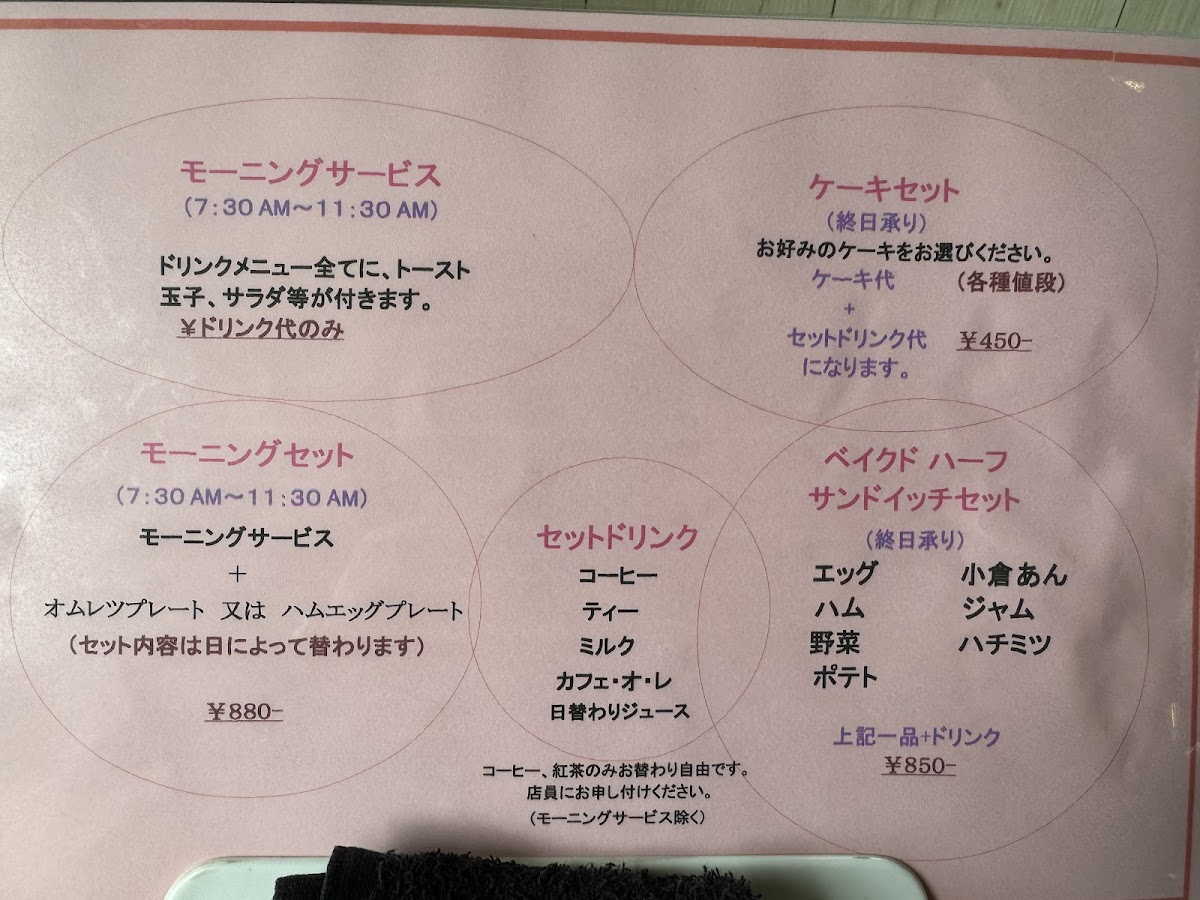 モーニングサービス
(7:30 AM～11:30 AM)
ドリンクメニュー全てに、トースト
玉子、サラダ等が付きます。
￥ドリンク代のみ
ケーキセット
(終日承り)
お好みのケーキをお選びください。
ケーキ代 (各種値段)
+
セットドリンク代 ￥450-
になります。
モーニングセット
(7:30 AM～11:30 AM)
モーニングサービス
+
オムレツプレート 又は ハムエッグプレート
(セット内容は日によって替わります)
￥880-
セットドリンク
コーヒー
ティー
ミルク
カフェ・オ・レ
日替わりジュース
コーヒー、紅茶のみお替わり自由です。
店員にお申し付けください。
(モーニングサービス除く)
ベイクド ハーフ
サンドイッチセット
(終日承り)
エッグ 小倉あん
ハム ジャム
野菜 ハチミツ
ポテト
上記一品+ドリンク
￥850-